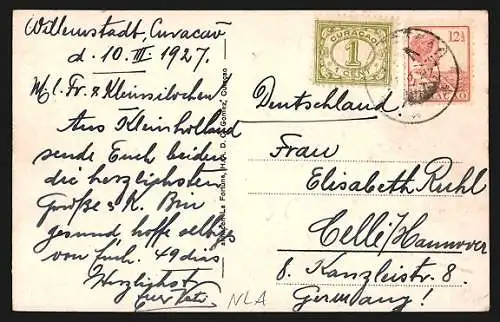 Willemstadt, Curacao
d. 10. III 1927.
M. l. Fr. & Kleinsilochen
Aus Kleinholland
sende Euch beiden
die herzlichsten
Grüße & K. Bin
gesund hoffe
von Euch. 49 dias
Herzlichst
Euer
NLA
CURAÇAO
1
CENT
12½
Deutschland
Frau
Elisabeth Ruhl
Celle/Hannover
8. Kanzleistr. 8.
Germany!